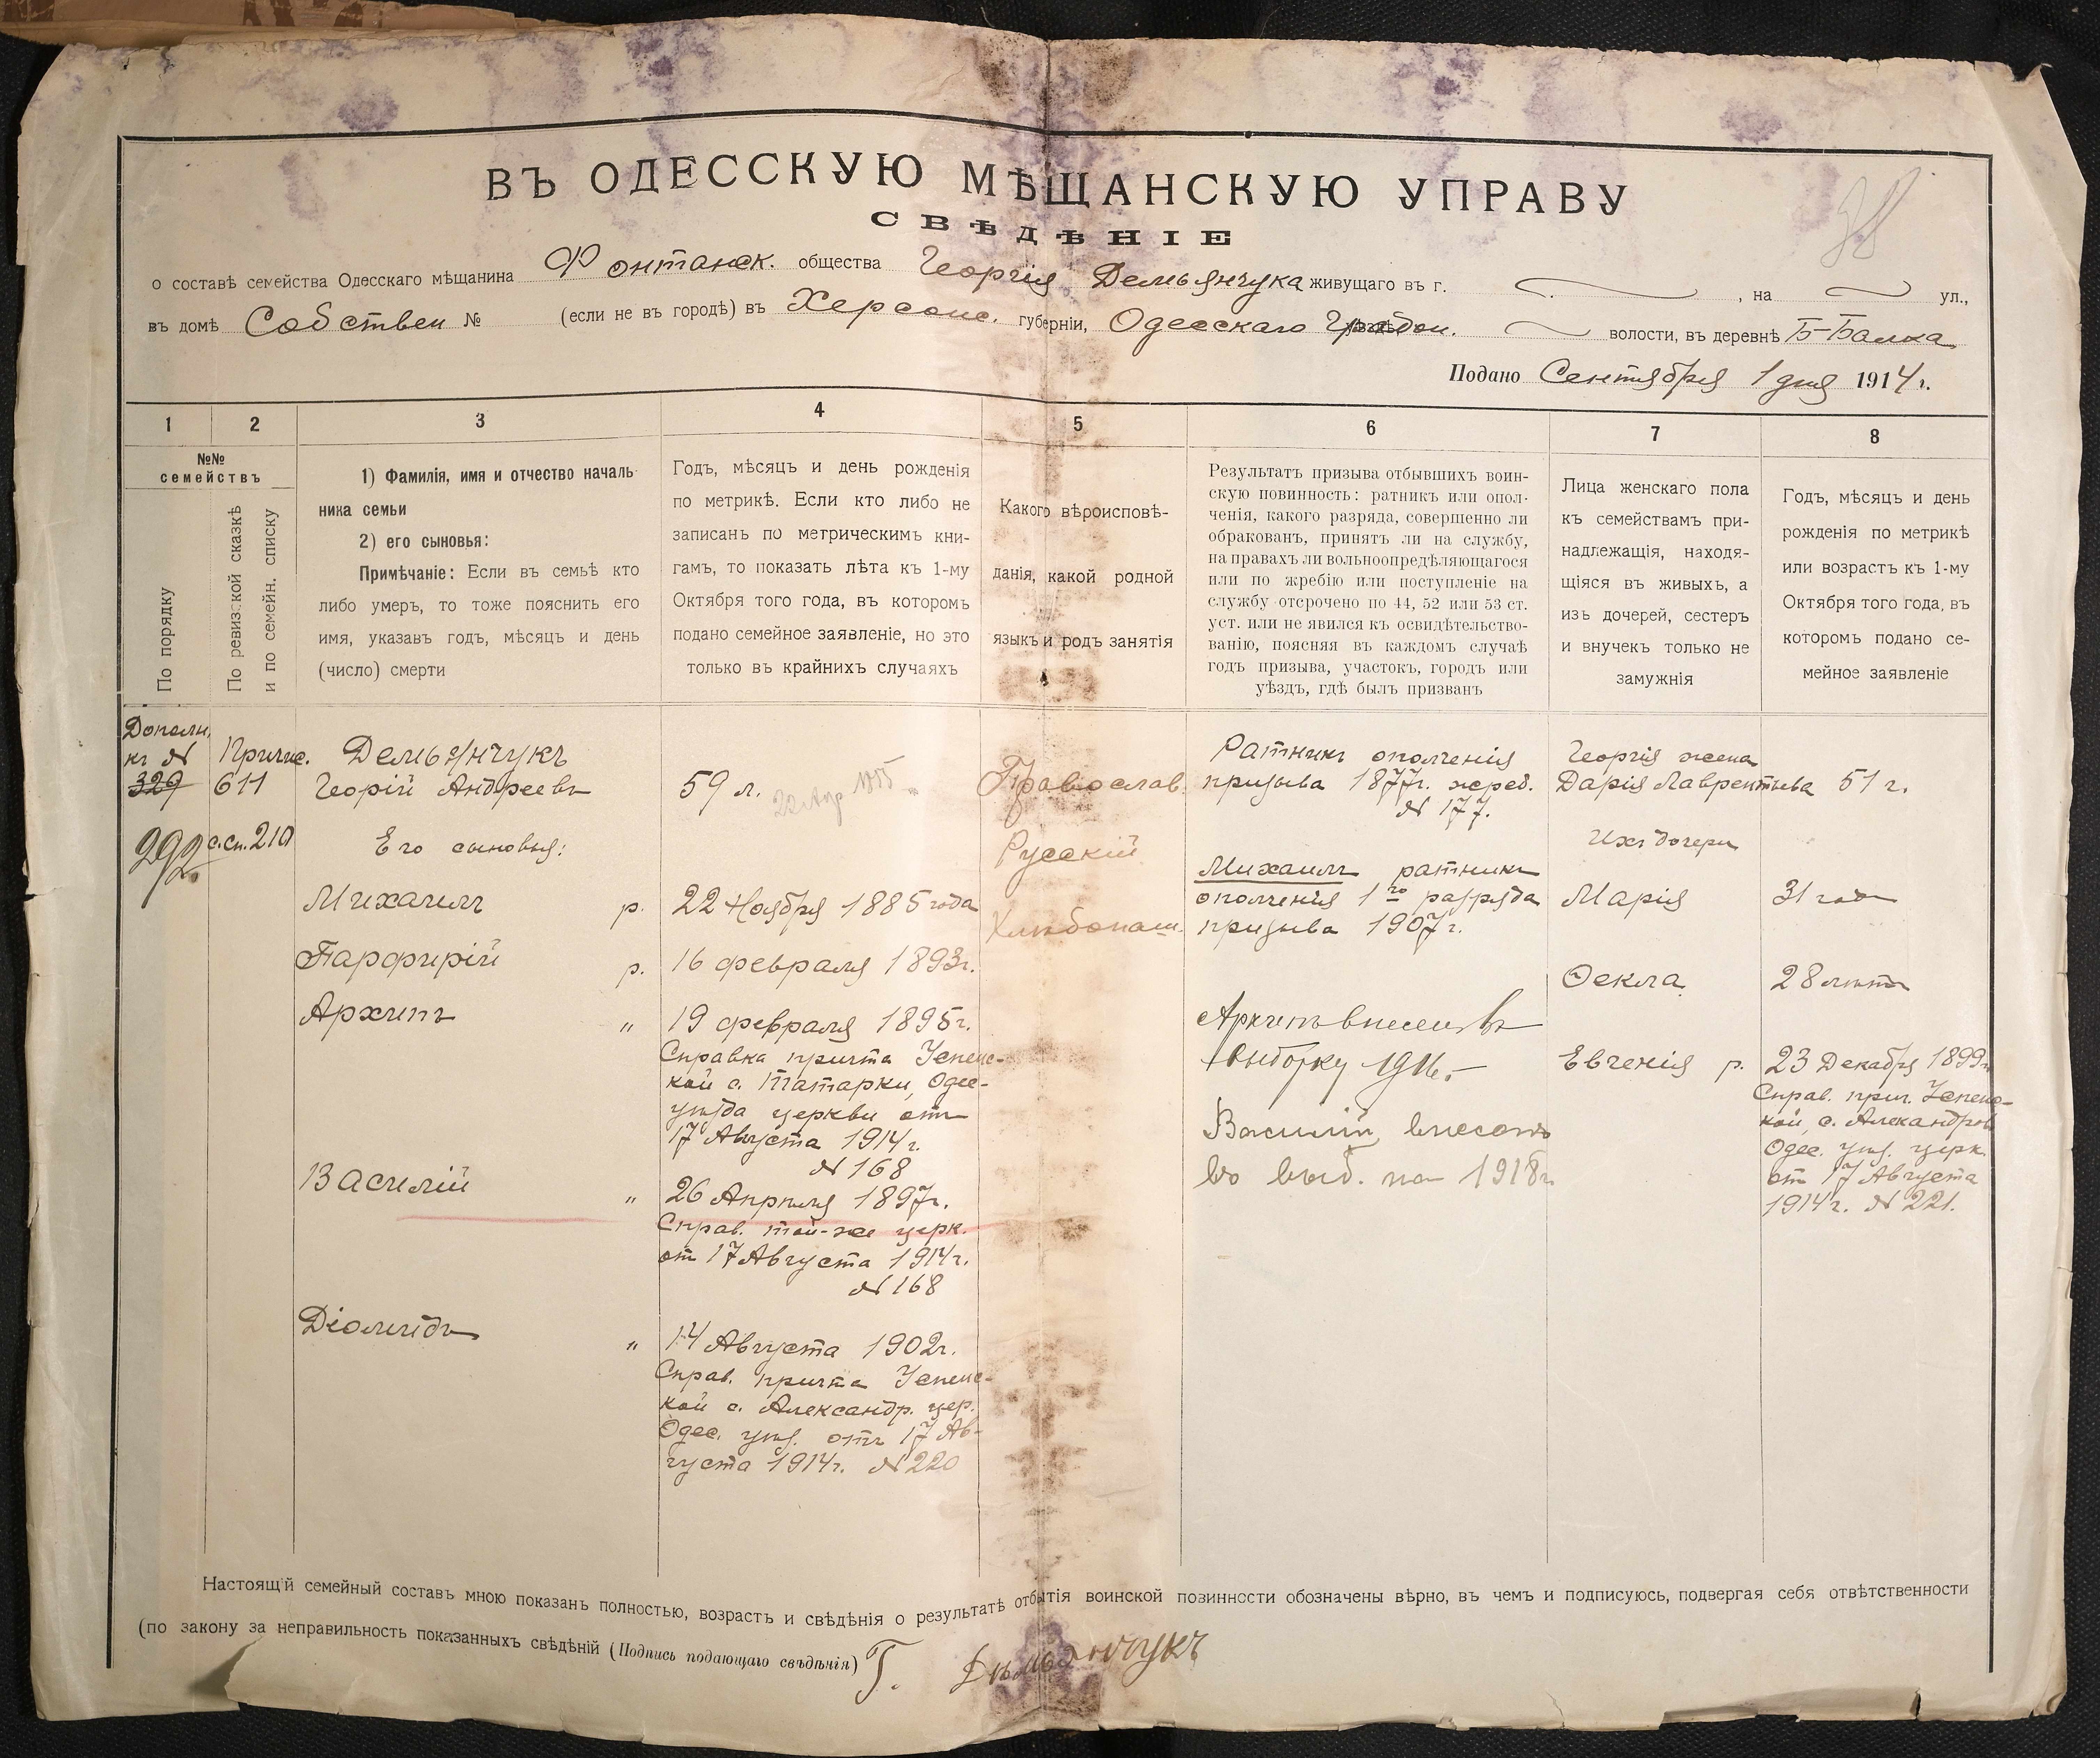 ВЪ ОДЕССКУЮ МѢЩАНСКУЮ УПРАВУ
СВѢДѢНІЕ
о составѣ семейства Одесскаго мѣщанина Фонтанск. общества Георгія Демьянчука живущаго въ г. , на ул.,
въ домѣ Собствен № (если не въ городѣ) въ Херсонс. губерніи, Одесскаго Градон. волости, въ деревнѣ Б-Балка
Подано Сентября 1 дня 1914 г.
1 2 3 4 5 6 7 8
№№
семействъ
По порядку
По ревизской сказкѣ
и по семейн. списку
1) Фамилія, имя и отчество началь
ника семьи
2) его сыновья:
Примѣчаніе: Если въ семьѣ кто
либо умеръ, то тоже пояснить его
имя, указавъ годъ, мѣсяцъ и день
(число) смерти
Годъ, мѣсяцъ и день рожденія
по метрикѣ. Если кто либо не
записанъ по метрическимъ кни-
гамъ, то показать лѣта къ 1-му
Октября того года, въ которомъ
подано семейное заявленіе, но это
только въ крайнихъ случаяхъ
Какого вѣроисповѣ-
данія, какой родной
языкъ и родъ занятія
Результатъ призыва отбывшихъ воин-
скую повинность: ратникъ или опол-
ченія, какого разряда, совершенно ли
обракованъ, принятъ ли на службу,
на правахъ ли вольноопредѣляющагося
или по жребію или поступленіе на
службу отсрочено по 44, 52 или 53 ст.
уст. или не явился къ освидѣтельство-
ванію, поясняя въ каждомъ случаѣ
годъ призыва, участокъ, городъ или
уѣздъ, гдѣ былъ призванъ
Лица женскаго пола
къ семействамъ при-
надлежащія, находя-
щіяся въ живыхъ, а
изъ дочерей, сестеръ
и внучекъ только не
замужнія
Годъ, мѣсяцъ и день
рожденія по метрикѣ
или возрастъ къ 1-му
Октября того года, въ
которомъ подано се-
мейное заявленіе
Дополн.
къ №
329
292
Причис.
611
с.сп. 210
Демьянчукъ
Георгій Андреевъ
Его сыновья:
Михаилъ р.
Парфирій р.
Архипъ "
Василій "
Діомидъ "
59 л. 22 Апр 1855
22 Ноября 1885 года
16 февраля 1893г.
19 февраля 1895г.
Справка причта Успенс-
кой с. Татарки, Одес-
уѣзда церкви отъ
17 Августа 1914 г.
№ 168
26 Апрѣля 1897г.
Справ. той-же церк.
от 17 Августа 1914г.
№ 168
14 Августа 1902г.
Справ. причта Успенс-
кой с. Александр. цер.
Одес. уѣз. отъ 17 Ав-
густа 1914г. № 220
Православ.
Русскій
Хлѣбопаш.
Ратникъ ополченія
призыва 1877г. жреб.
№ 177.
Михаилъ ратникъ
ополченія 1го разряда
призыва 1907г.
Архипъ внесенъ въ
выборку 1916г.
Василій внесенъ
въ выб. на 1918г.
Георгія жена
Дарія Лаврентьева 51 г.
Ихъ дочери
Марія 31 год
Ѳекла 28 лѣтъ
Евгенія р. 23 Декабря 1899г
Справ. прич. Успенс-
кой, с. Александров
Одес. уѣз. церк.
от 17 Августа
1914г. № 221.
Настоящій семейный составъ мною показанъ полностью, возрастъ и свѣдѣнія о результатѣ отбытія воинской повинности обозначены вѣрно, въ чемъ и подписуюсь, подвергая себя отвѣтственности
(по закону за неправильность показанныхъ свѣдѣній (Подпись подающаго свѣдѣнія) Г. Дѣмьянчукъ